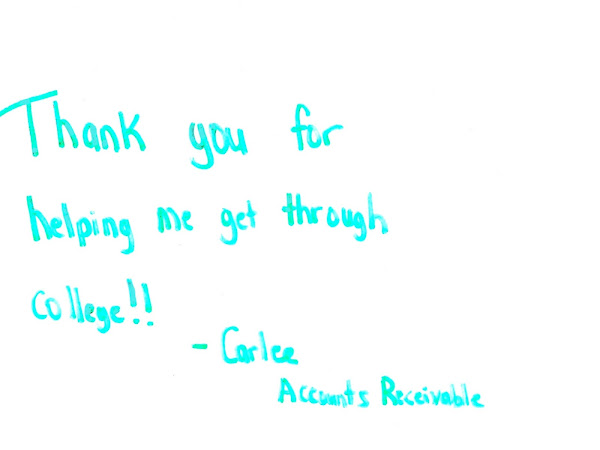 Thank you for
helping me get through
college!!
- Carlee
Accounts Receivable